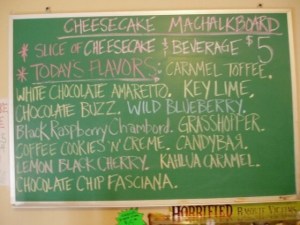 CHEESECAKE MACHALKBOARD
* SLICE OF CHEESECAKE & BEVERAGE $5
* TODAY'S FLAVORS: CARAMEL TOFFEE.
WHITE CHOCOLATE AMARETTO. KEY LIME,
CHOCOLATE BUZZ. WILD BLUEBERRY.
Black Raspberry Chambord. GRASSHOPPER.
COFFEE COOKIES 'N CREME. CANDYBAR.
LEMON BLACK CHERRY. KAHLUA CARAMEL.
CHOCOLATE CHIP FASCIANA.
HORRIFIED